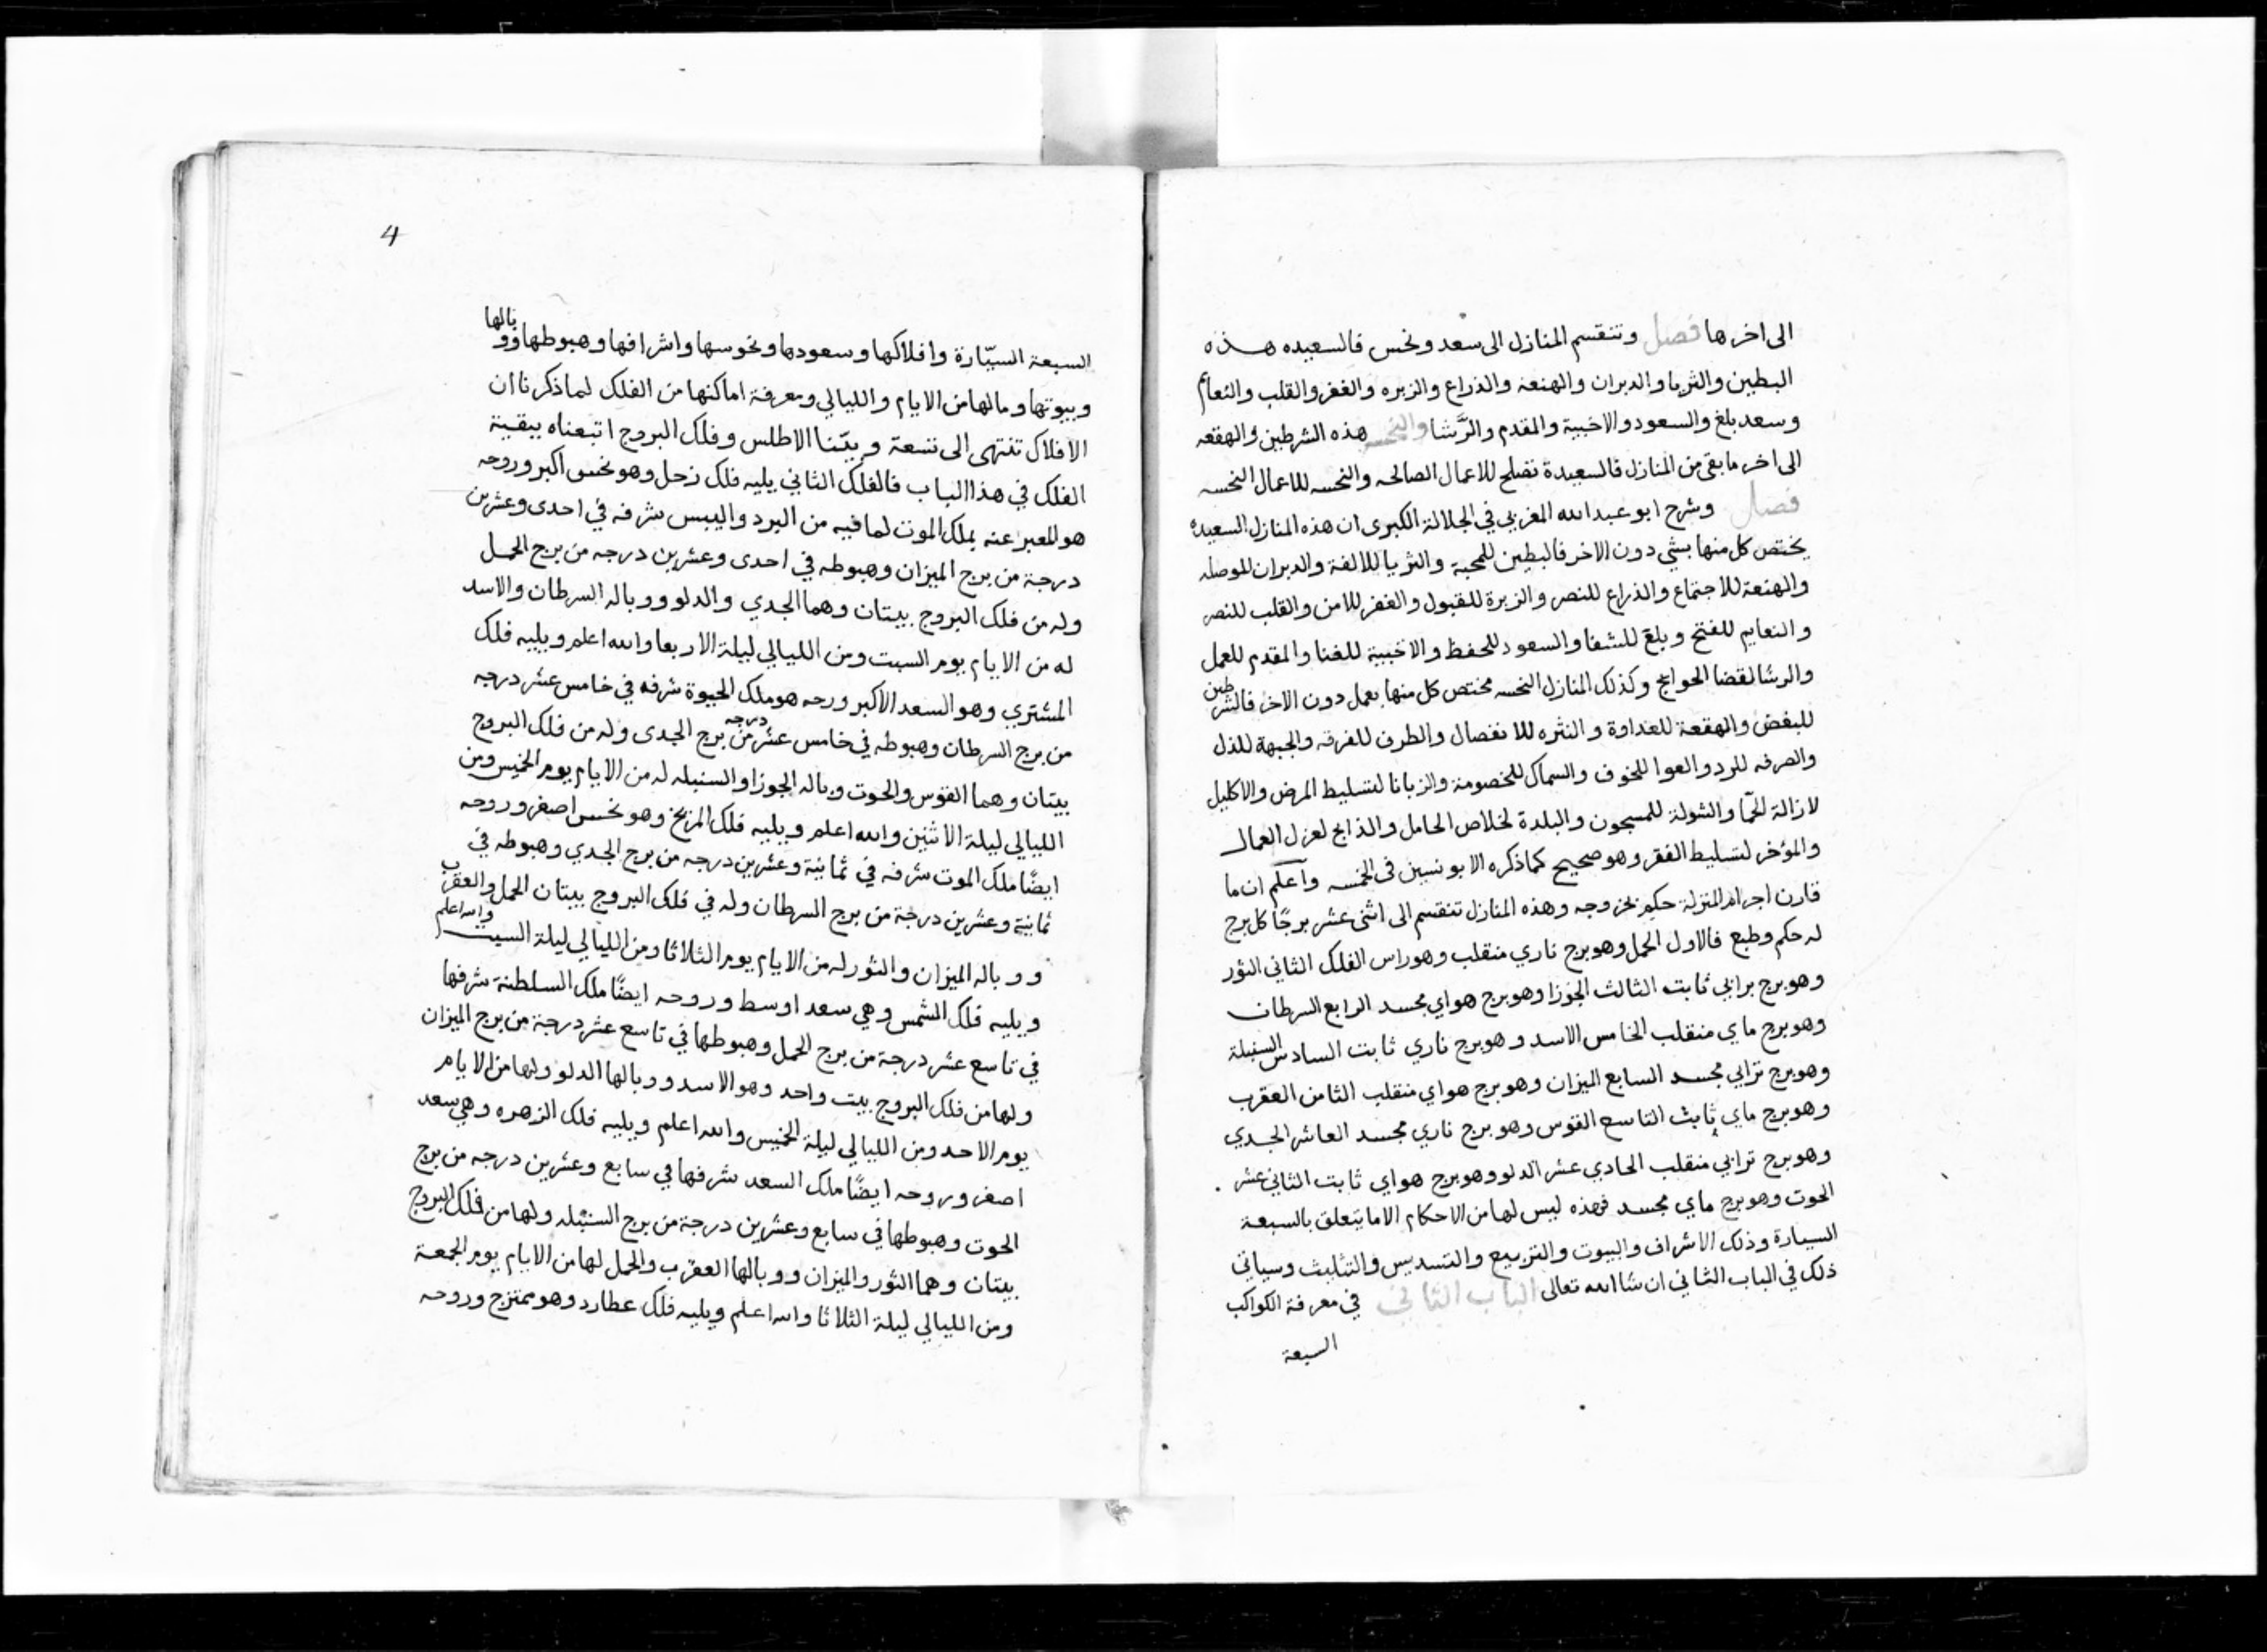 الى اخرها فصل وتنقسم المنازل الى سعد ونحس فالسعيده هذه
البطين والثريا والدبران والهنعة والذراع والزبره والغفر والقلب والنعايم
وسعد بلغ والسعود والاخبية والمقدم والرَّشا والنحسه هذه الشرطين والهقعه
الى اخر ما بقى من المنازل فالسعيدة تصلح للاعمال الصالحه والنحسه للاعمال النحسه
فصل وشرح ابو عبد الله المغربي في الجلالة الكبرى ان هذه المنازل السعيده
يختص كل منها بشي دون الاخر فالبطين للمحبة والثريا للالفة والدبران للموصله
والهنعة للاجتماع والذراع للنصر والزبرة للقبول والغفر للامن والقلب للنصر
والنعايم للفتح وبلغ للشفا والسعود للحفظ والاخبية للغنا والمقدم للعمل
والرشا لقضا الحوايج وكذلك المنازل النحسه مختص كل منها بعمل دون الاخر فالشرطين
للبغض والهقعة للعداوة والنثره للانفصال والطرف للفرقه والجبهة للذل
والصرفه للرد والعوا للخوف والسماك للخصومة والزبانا لتسليط المرض والاكليل
لازالة الحمّا والشولة للمسجون والبلدة لخلاص الحامل والذابح لعزل العمال
والمؤخر لتسليط الفقر وهو صحيح كما ذكره الابونسين فى الخمسه وآعلم ان ما
قارن اجرام المنزلة حكم بخروجه وهذه المنازل تنقسم الى اثنى عشر برجًا كل برج
له حكم وطبع فالاول الحمل وهو برج ناري منقلب وهو راس الفلك الثاني الثور
وهو برج برابي ثابت الثالث الجوزا وهو برج هواي مجسد الرابع السرطان
وهو برج ماي منقلب الخامس الاسد وهو برج ناري ثابت السادس السنبلة
وهو برج ترابي مجسد السابع الميزان وهو برج هواي منقلب الثامن العقرب
وهو برج ماي ثابث التاسع القوس وهو برج ناري مجسد العاشر الجدي
وهو برج ترابي منقلب الحادي عشر الدلو وهو برج هواي ثابت الثاني عشر
الحوت وهو برج ماي مجسد فهذه ليس لها من الاحكام الا ما يتعلق بالسبعة
السيارة وذلك الاشراف والبيوت والتربيع والتسديس والتثليث وسياتى
ذلك في الباب الثاني ان شا الله تعالى الباب الثاني في معرفة الكواكب
السبعة
4
السبعة السيّارة وافلاكها وسعودها ونحوسها واشرافها وهبوطها ووبالها
وبيوتها وما لها من الايام والليالي ومعرفة اماكنها من الفلك لما ذكرنا ان
الافلاك تنتهى الى تسعة وبيّنا الاطلس وفلك البروج اتبعناه ببقية
الفلك في هذا الباب فالفلك الثاني يليه فلك زحل وهو نحس اكبر وروحه
هو المعبر عنه بملك الموت لما فيه من البرد واليبس شرفه في احدى وعشرين
درجة من برج الميزان وهبوطه في احدى وعشرين درجه من برج الحمل
وله من فلك البروج بيتان وهما الجدي والدلو ووباله السرطان والاسد
له من الايام يوم السبت ومن الليالي ليلة الاربعا والله اعلم ويليه فلك
المشتري وهو السعد الاكبر ورحه هو ملك الحيوة شرفه في خامس عشر درجه
من برج السرطان وهبوطه في خامس عشر درجه من برج الجدى وله من فلك البروج
بيتان وهما القوس والحوت وباله الجوزا والسنبله له من الايام يوم الخميس ومن
الليالي ليلة الاثنين والله اعلم ويليه فلك المريخ وهو نحس اصغر وروحه
ايضًا ملك الموت شرفه في ثمانية وعشرين درجه من برج الجدي وهبوطه في
ثمانية وعشرين درجة من برج السرطان وله في فلك البروج بيتان الحمل والعقرب
ووباله الميزان والثور له من الايام يوم الثلاثا ومن الليالي ليلة السبت والله اعلم
ويليه فلك الشمس وهي سعد اوسط وروحه ايضًا ملك السلطنة شرفها
في تاسع عشر درجة من برج الحمل وهبوطها في تاسع عشر درجة من برج الميزان
ولها من فلك البروج بيت واحد وهو الاسد ووبالها الدلو ولها من الايام
يوم الاحد ومن الليالي ليلة الخميس والله اعلم ويليه فلك الزهره وهي سعد
اصغر وروحه ايضًا ملك السعد شرفها في سابع وعشرين درجه من برج
الحوت وهبوطها في سابع وعشرين درجة من برج السنبله ولها من فلك البروج
بيتان وهما الثور والميزان ووبالها العقرب والحمل لها من الايام يوم الجمعة
ومن الليالي ليلة الثلاثا والله اعلم ويليه فلك عطارد وهو ممتزج وروحه